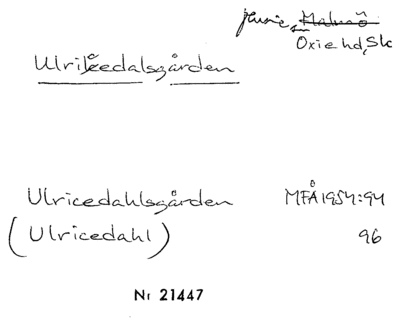 Husie, Malmö
Oxie hd, Sk
Ulrikedalsgården
Ulricedahlsgården MFÅ 1954:94
(Ulricedahl) 96
Nr 21447